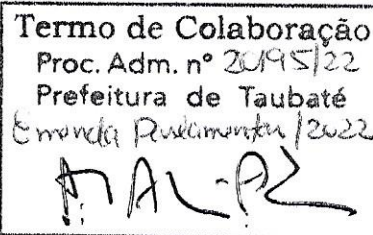 Termo de Colaboração
Proc. Adm. nº 20195/22
Prefeitura de Taubaté
Emenda Parlamentar/2022